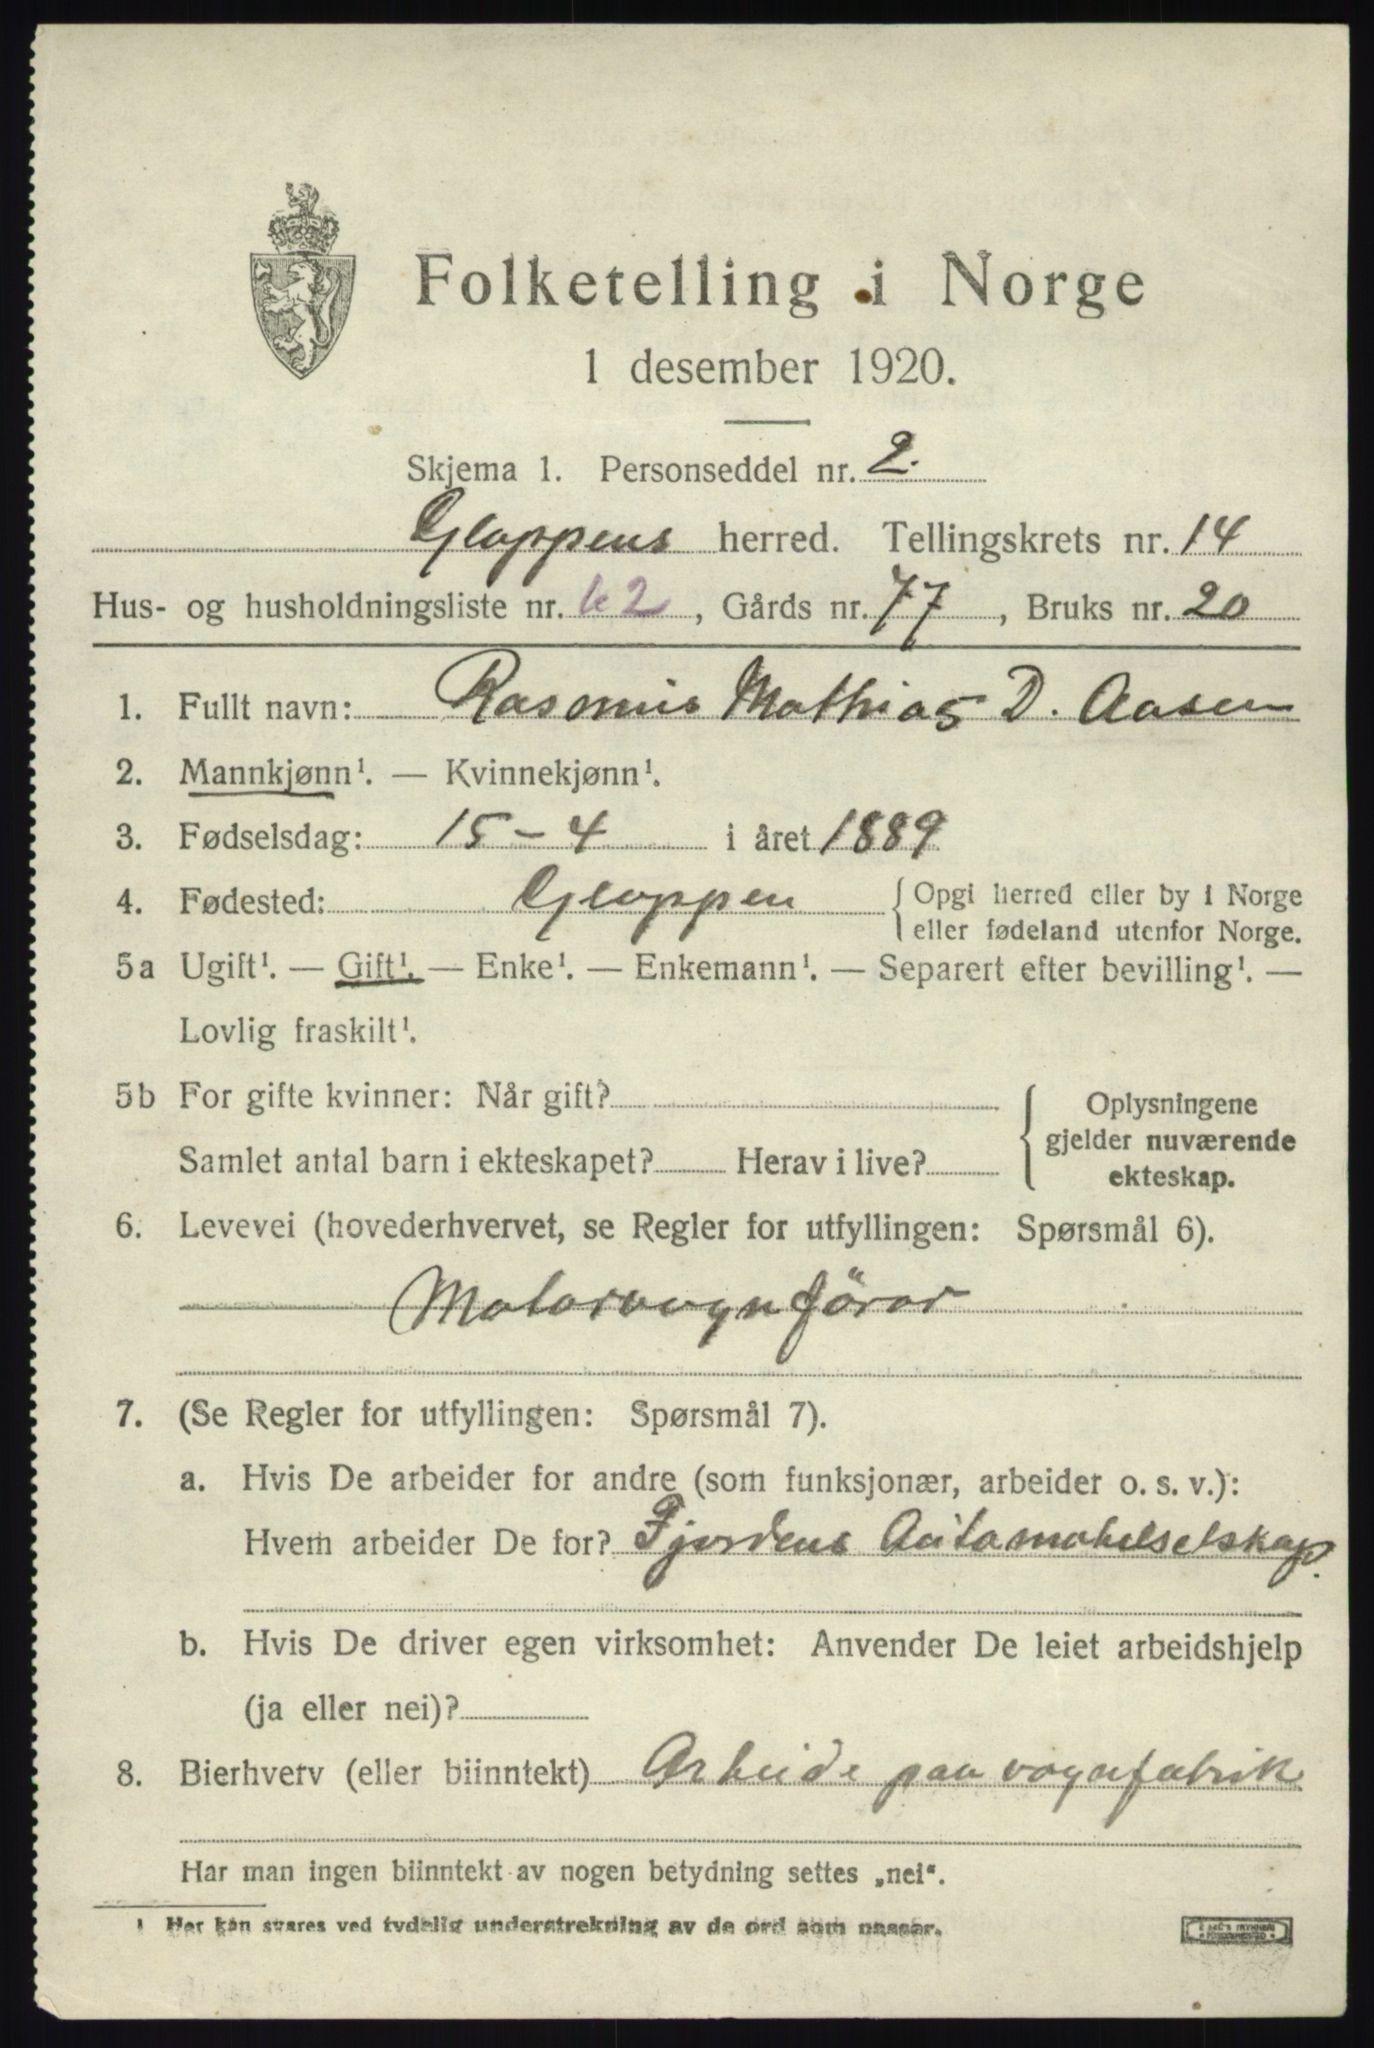 Folketelling i Norge
1 desember 1920.
Skjema 1. Personseddel nr. 2.
Gloppens herred. Tellingskrets nr. 14
Hus- og husholdningsliste nr. 62, Gårds nr. 77, Bruks nr. 20
1. Fullt navn: Rasmus Mathias D. Aasen
2. Mannkjønn¹. — Kvinnekjønn¹.
3. Fødselsdag: 15 - 4 i året 1889
4. Fødested: Gloppen { Opgi herred eller by i Norge
eller fødeland utenfor Norge.
5a Ugift¹. — Gift¹. — Enke¹. — Enkemann¹. — Separert efter bevilling¹. —
Lovlig fraskilt¹.
5b For gifte kvinner: Når gift?
Samlet antal barn i ekteskapet? Herav i live?
{ Oplysningene
gjelder nuværende
ekteskap.
6. Levevei (hovederhvervet, se Regler for utfyllingen: Spørsmål 6).
Motorvognförar
7. (Se Regler for utfyllingen: Spørsmål 7).
a. Hvis De arbeider for andre (som funksjonær, arbeider o. s. v.):
Hvem arbeider De for? Fjordens Automobilselskap.
b. Hvis De driver egen virksomhet: Anvender De leiet arbeidshjelp
(ja eller nei)?
8. Bierhverv (eller biinntekt) Arbeide paa vognfabrik
Har man ingen biinntekt av nogen betydning settes „nei“.
1 Her kan svares ved tydelig understrekning av de ord som passer.